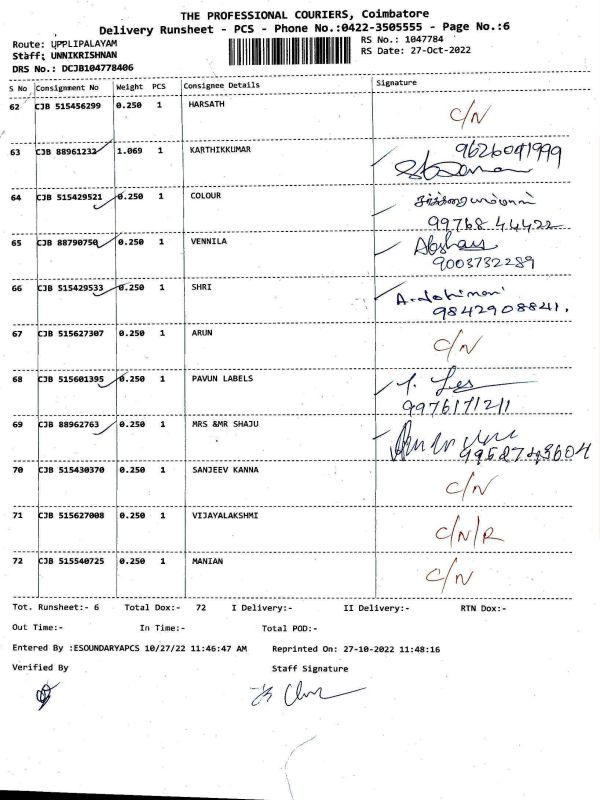 THE PROFESSIONAL COURIERS, Coimbatore
Delivery Runsheet - PCS - Phone No.:0422-3505555 - Page No.:6
Route: UPPLIPALAYAM RS No.: 1047784
Staff: UNNIKRISHNAN RS Date: 27-Oct-2022
DRS No.: DCJB104778406
S No Consignment No Weight PCS Consignee Details Signature
62 CJB 515456299 0.250 1 HARSATH C/N
63 CJB 88961232 1.069 1 KARTHIKKUMAR 9626041999
64 CJB 515429521 0.250 1 COLOUR
99768 44422
65 CJB 88790750 0.250 1 VENNILA
9003732289
66 CJB 515429533 0.250 1 SHRI
9842908841.
67 CJB 515627307 0.250 1 ARUN C/N
68 CJB 515601395 0.250 1 PAVUN LABELS
9976171211
69 CJB 88962763 0.250 1 MRS &MR SHAJU
70 CJB 515430370 0.250 1 SANJEEV KANNA C/N
71 CJB 515627008 0.250 1 VIJAYALAKSHMI C/N/R
72 CJB 515540725 0.250 1 MANIAN C/N
Tot. Runsheet:- 6 Total Dox:- 72 I Delivery:- II Delivery:- RTN Dox:-
Out Time:- In Time:- Total POD:-
Entered By :ESOUNDARYAPCS 10/27/22 11:46:47 AM Reprinted On: 27-10-2022 11:48:16
Verified By Staff Signature